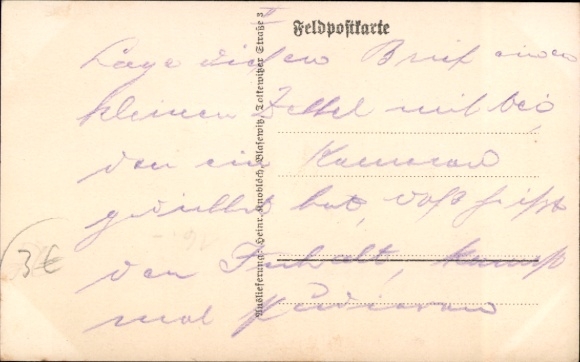 Feldpostkarte
II
Lege diesen Brief einen
kleinen Zettel mit bei,
den ein Kamerad
gedichtet hat, daß ist
der Inhalt, kannst
mal studieren
3€
Auslieferung: Heinr. Knobloch, Blasewitz, Tolkewitzer Straße 3